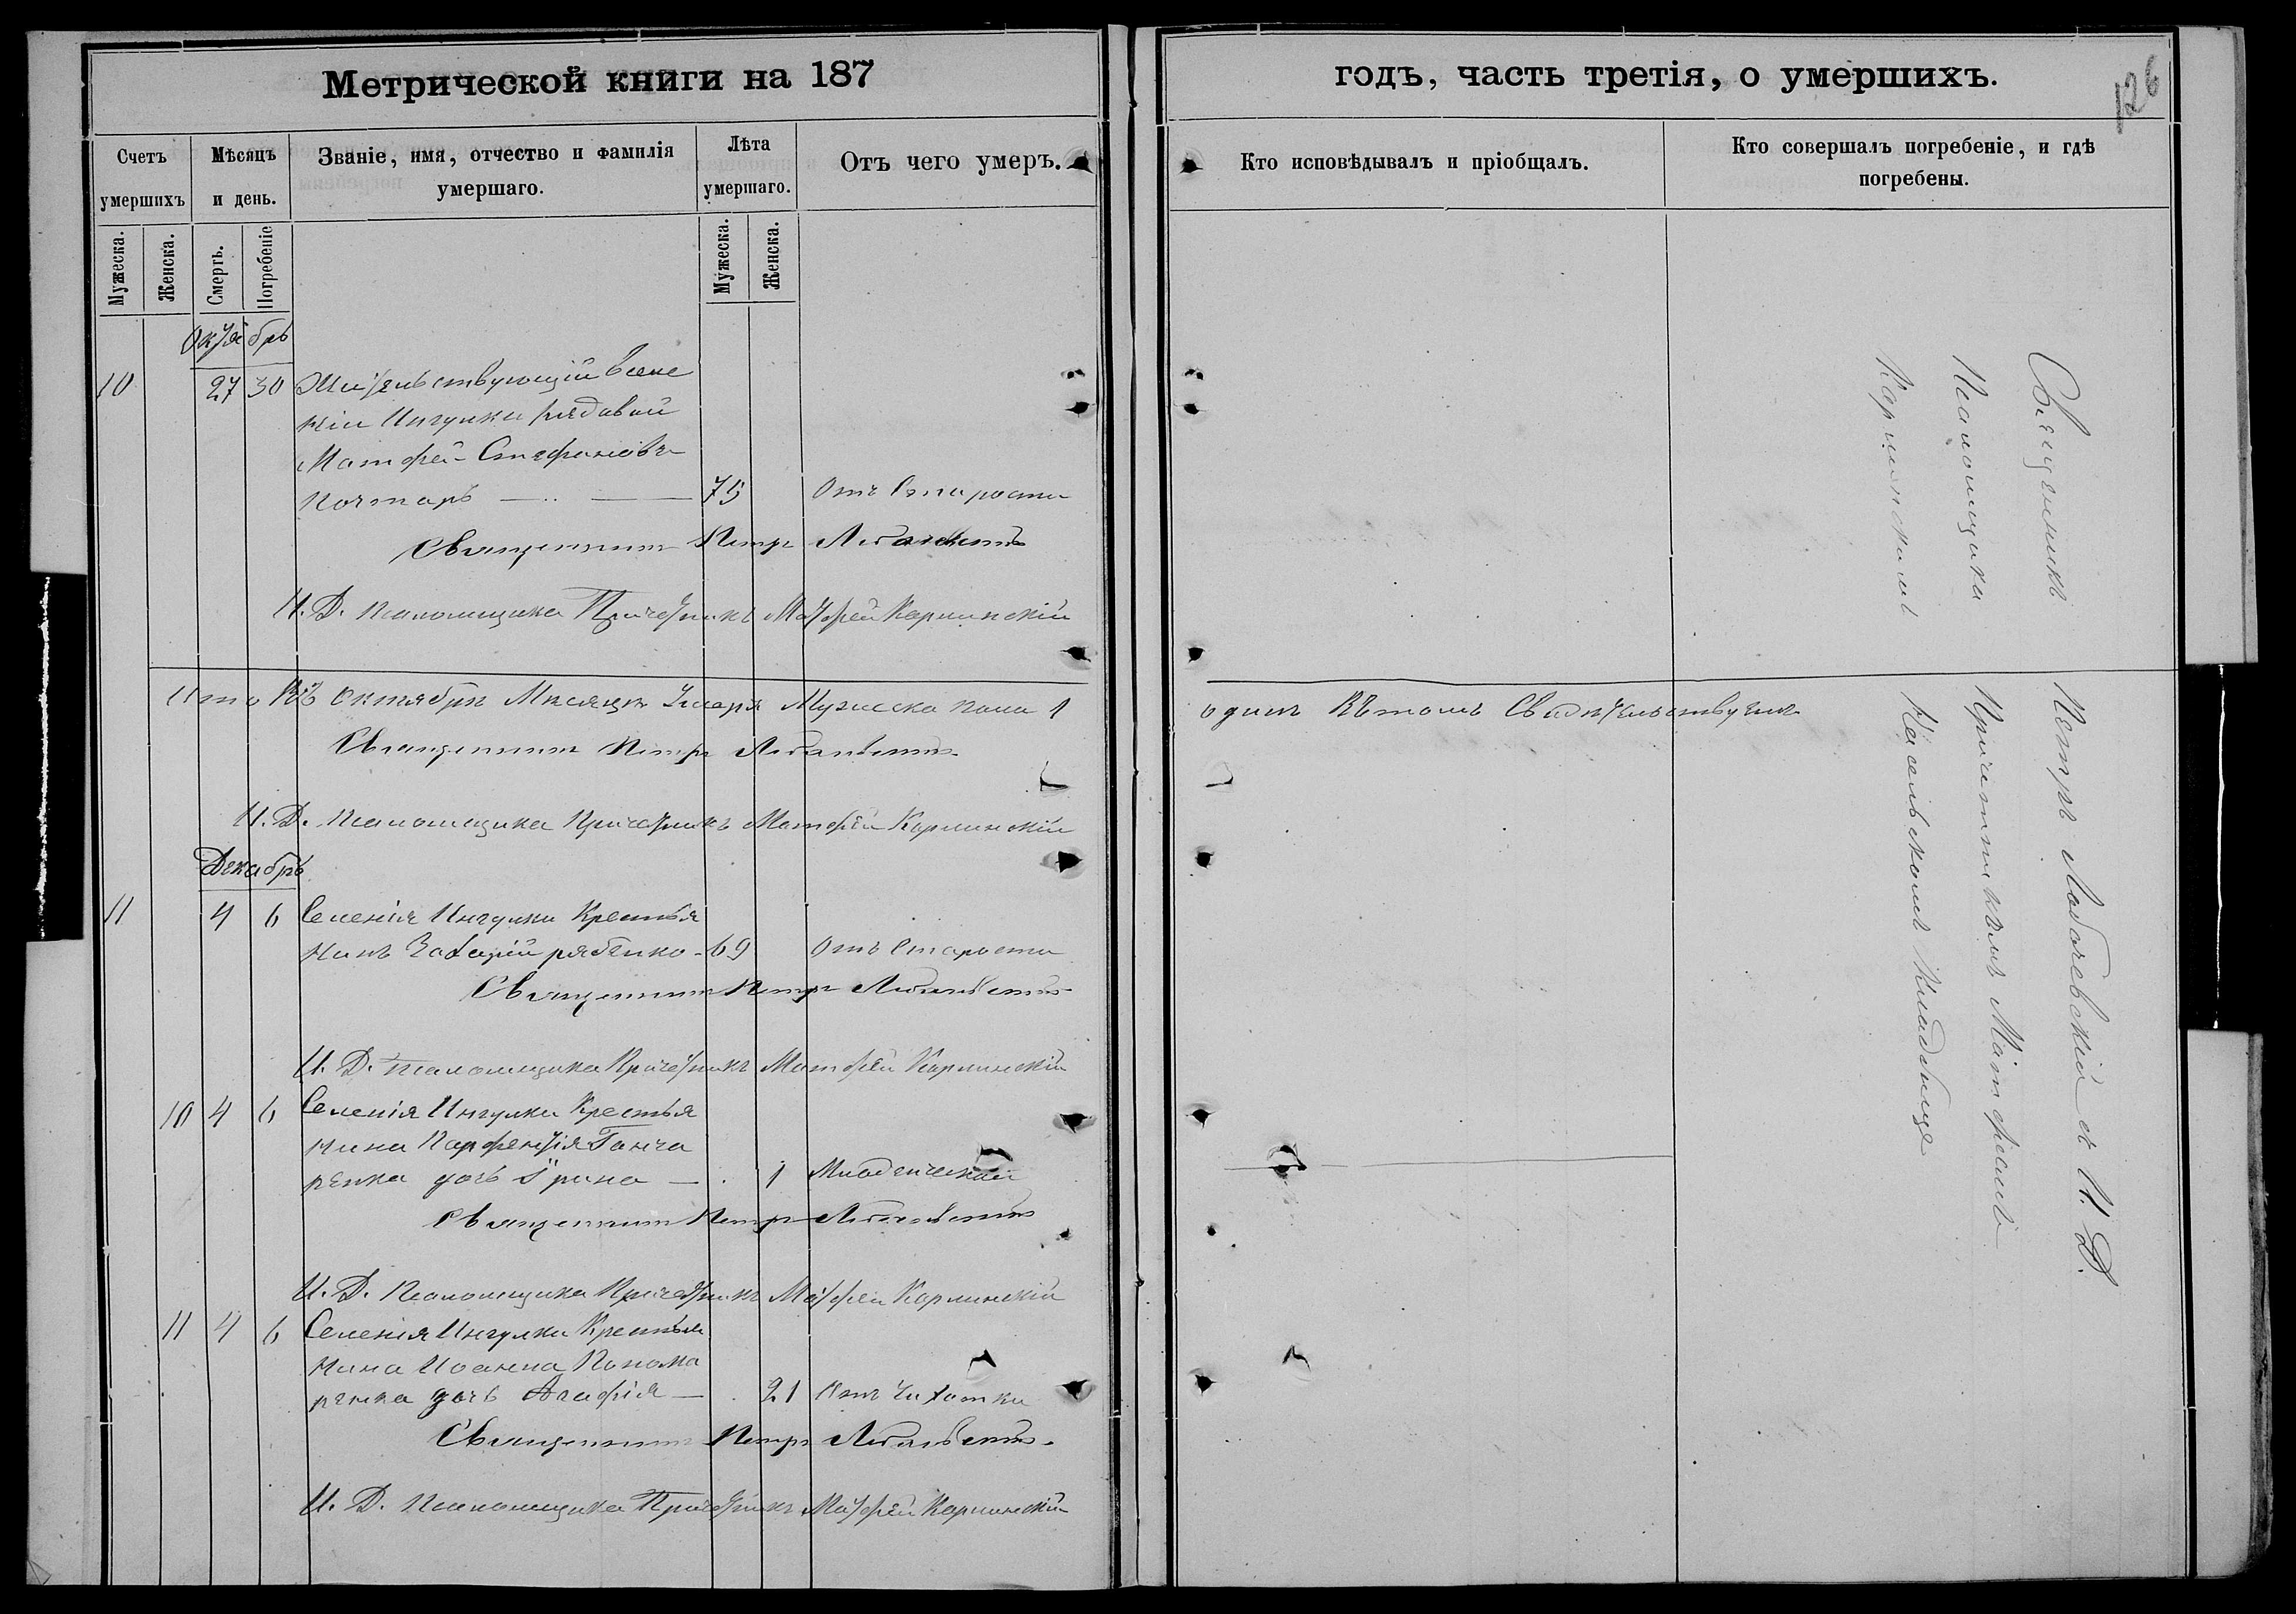 Метрической книги на 187
годъ, часть третія, о умершихъ.
126
Счетъ умершихъ
Мѣсяцъ и день.
Званіе, имя, отчество и фамилія умершаго.
Лѣта умершаго.
Отъ чего умеръ.
Кто исповѣдывалъ и пріобщалъ.
Кто совершалъ погребеніе, и гдѣ погребены.
Мужеска.
Женска.
Смерть.
Погребеніе
Мужеска.
Женска.
Октябрь
10 27 30 Жительствующій въ селе
ніи Ингулки рядовой
Матфей Стефановъ
Почтарь 75 Отъ Старости
Священникъ Петръ
И. Д. Псаломщика Причетникъ Матфей Карминскій
Итого Въ Октябрѣ Мѣсяцѣ Умерл Мужеска пола 1
одинъ Въ томъ Свидѣтельствуемъ
Священникъ Петръ
И. Д. Псаломщика Причетникъ Матфей Карминскій
Декабрь
11 4 6 Селенія Ингулки Крестья
нинъ рябенко 69 Отъ Старости
Священникъ Петръ
И. Д. Псаломщика Причетникъ Матфей Карминскій
10 4 6 Селенія Ингулки Крестья
нина Парфентія Ганча
ренка дочь Ірина 1 Младенческой
Священникъ Петръ
И. Д. Псаломщика Причетникъ Матфей Карминскій
11 4 6 Селенія Ингулки Крестья
нина Иоанна Понома
ренка дочь Агафія 21 Отъ Чахотки
Священникъ Петръ
И. Д. Псаломщика Причетникъ Матфей Карминскій
Священникъ Петръ съ И. Д.
Псаломщика Причетникомъ Матфеемъ
Карминскимъ На сельскомъ кладбище